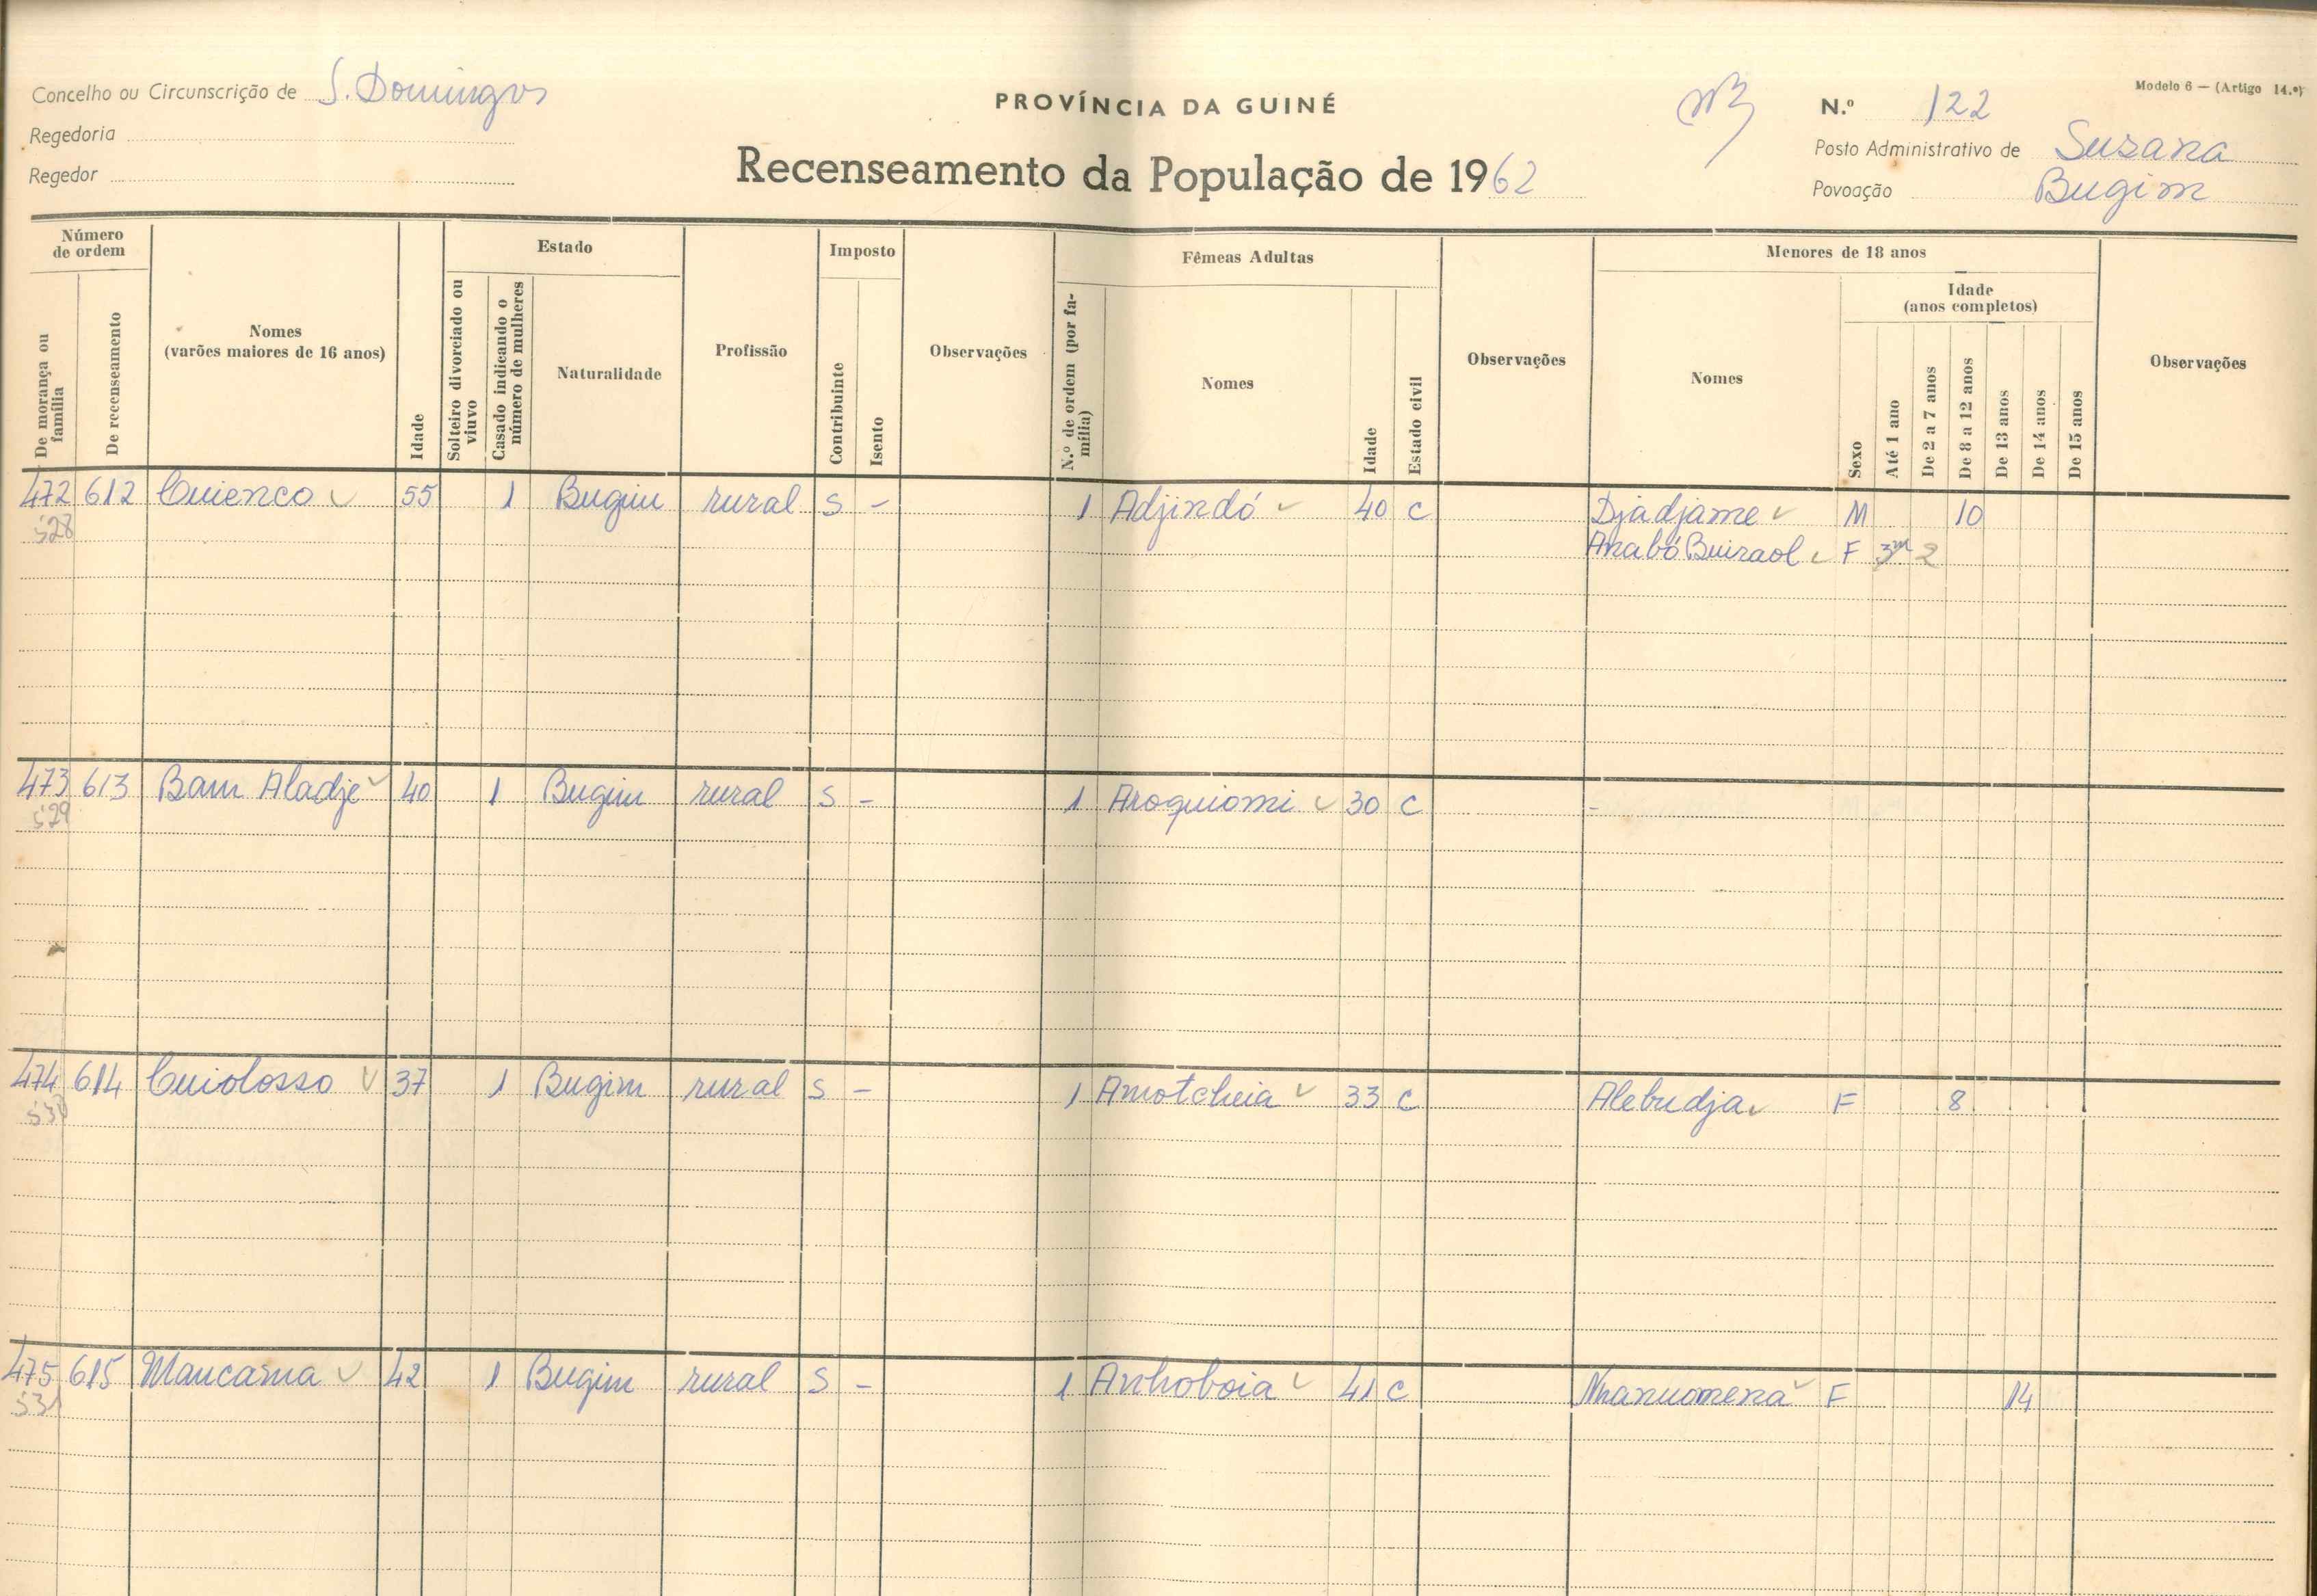 Concelho ou Circunscrição de S. Domingos
Regedoria
Regedor
PROVÍNCIA DA GUINÉ
Recenseamento da População de 1962
Modelo 6 — (Artigo 14.º)
N.º 122
Posto Administrativo de Suzana
Povoação Bugim
Número de ordem
De morança ou família
De recenseamento
Nomes
(varões maiores de 16 anos)
Idade
Estado
Solteiro divorciado ou viuvo
Casado indicando o número de mulheres
Naturalidade
Profissão
Imposto
Contribuinte
Isento
Observações
Fêmeas Adultas
N.º de ordem (por família)
Nomes
Idade
Estado civil
Observações
Menores de 18 anos
Nomes
Sexo
Idade
(anos completos)
Até 1 ano
De 2 a 7 anos
De 8 a 12 anos
De 13 anos
De 14 anos
De 15 anos
Observações
472 612 Cuienco 55 1 Bugim rural S - 1 Adjindó 40 C Djadjame M 10
528 Anabó Buiraol F 3m 2
473 613 Bam Aladje 40 1 Bugim rural S - 1 Aroquiomi 30 C -
529
474 614 Cuiolosso 37 1 Bugim rural S - 1 Amotcheia 33 C Alebudja F 8
530
475 615 Maucama 42 1 Bugim rural S - 1 Anhoboia 41 C F 14
531